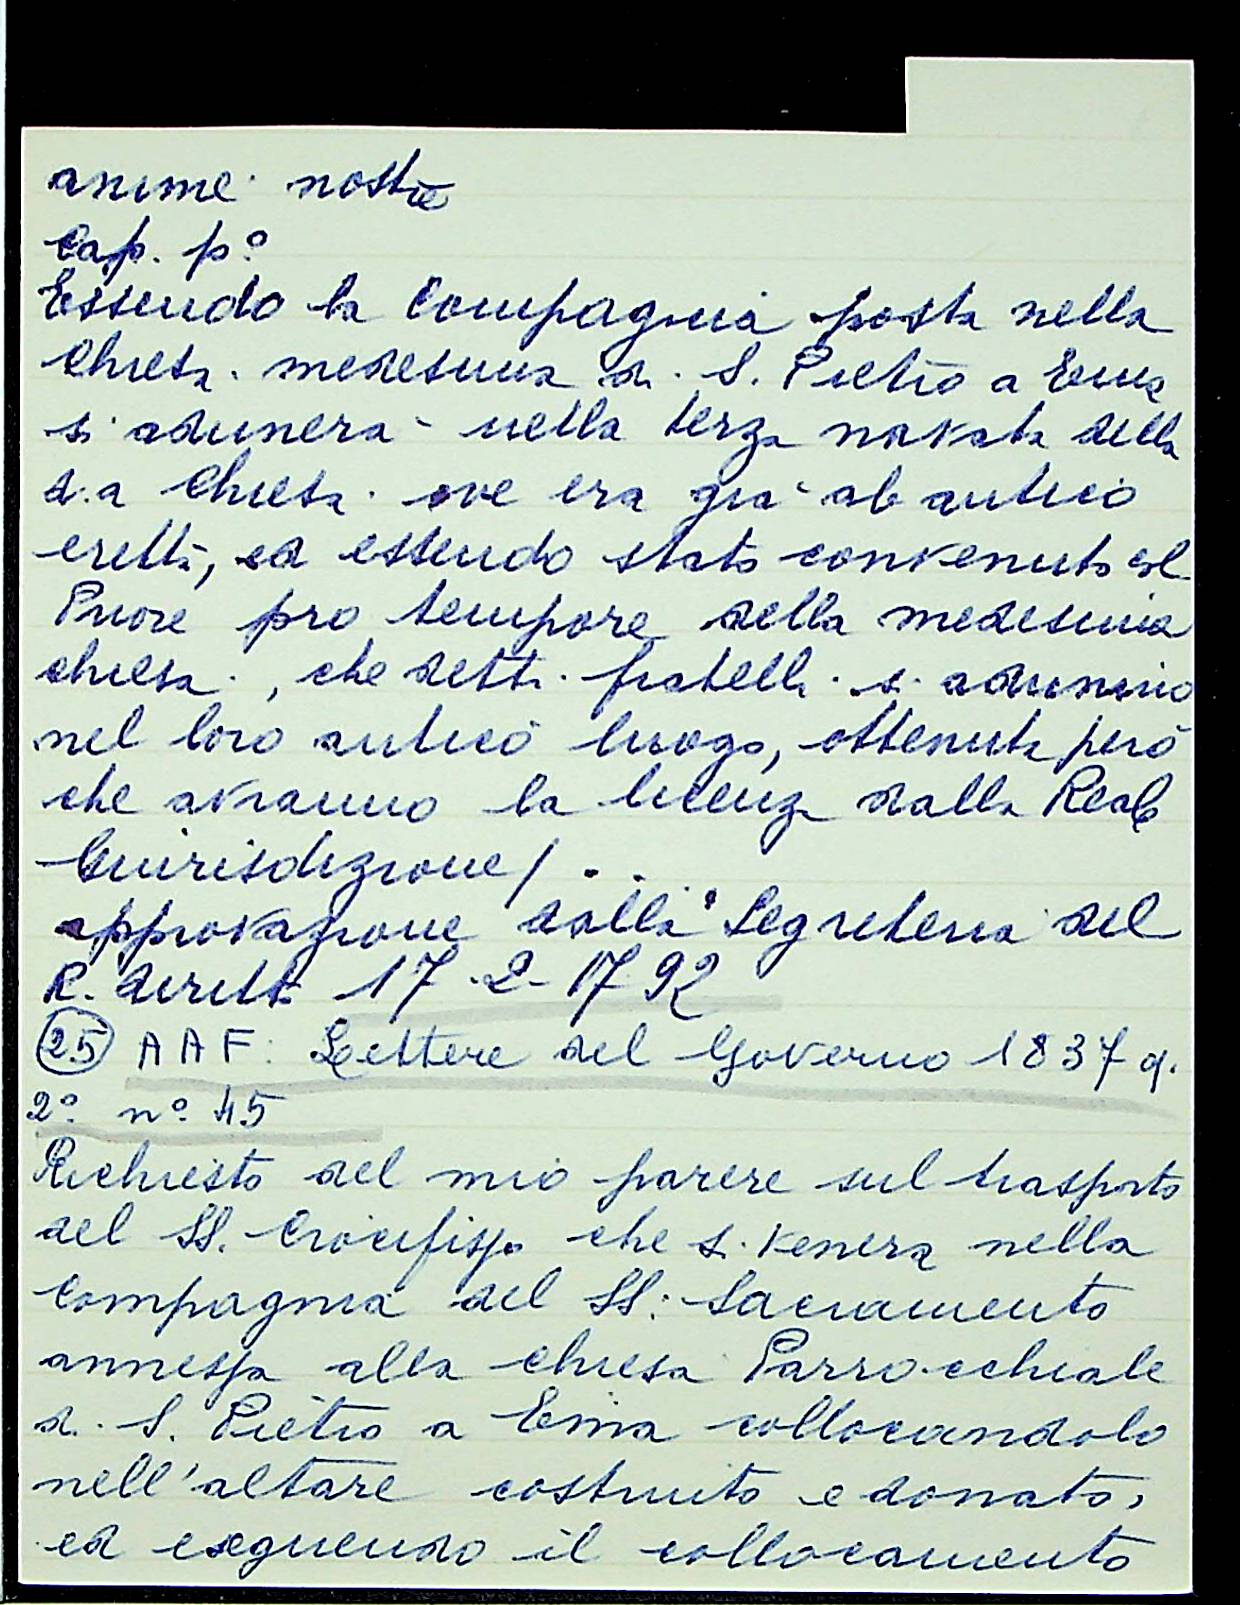 anime nostre
Cap. p°
Essendo la Compagnia posta nella
Chiesa medesima di S. Pietro a Ema
si adunerà nella terza navata della
d.a Chiesa ove era già ab antico
eretta, ed essendo stato convenuto col
Priore pro tempore della medesima
chiesa, che detti fratelli si adunino
nel loro antico luogo, ottenuta però
che avranno la licenza dalla Reale
Giurisdizione/..
approvazione dalla Segreteria del
R. diritto 17-2-1792
(25) AAF: Lettere del Governo 1837 q.
2° n° 45
Richiesto del mio parere sul trasporto
del SS. Crocifisso che si venera nella
Compagnia del SS: Sacramento
annessa alla chiesa Parrocchiale
di S. Pietro a Ema collocandolo
nell'altare costruito e donato,
ed eseguendo il collocamento